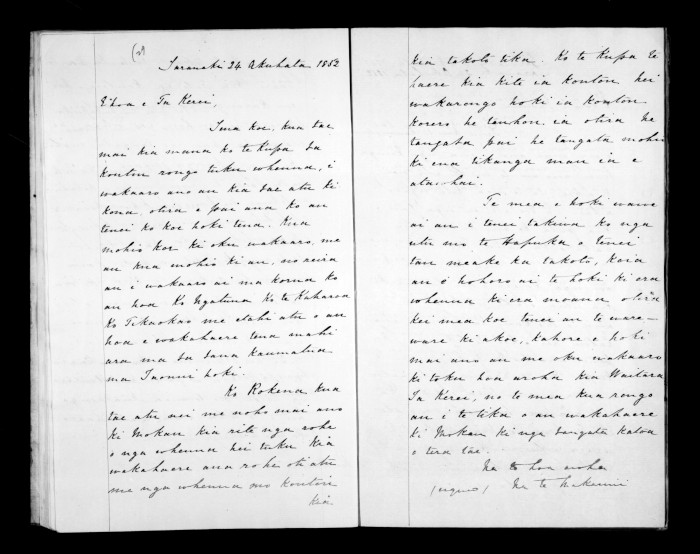 Taranaki 24 Akuhata 1852
E hoa e Ta Kerei,
Tena koe, kua tae
mai kia mana ko te Kupa
koutou rongo tuku whenua, i
wakaaro ano au kia tae atu ki
kona, otira e pai ana ko au
tenei ko koe hoki tena. Kua
mohio koe ki oku wakaaro, me
au kua mohio ki au, no reira
au i wakaaro ai ma koma ko
au hoa Ko Ngatuna Ko te Kaharoa
Ko Tikaokao me etahi atu o au
hoa e wakahaere tena mahi
ara ma kaumatua
ma Taonui hoki.
Ko Rokena kua
tae atu nei me noho mai ano
ki Mokau kia rite nga rohe
o nga whenua hei tuku kia
wakahaere ana rohe oti atu
me nga whenua mo koutou
kia
kia takoto tika. Ko te Kupa
haere kia kite ia koutou hei
wakarongo hoki ia koutou
korero he ia otira he
tangata pai he tangata mohio
ki ena tikanga mau ia e
atawhai.
Te mea e hoki wawe
ai au i tenei takiwa ko nga
utu mo te Hapuka o tenei
tau meake ka takoto, koia
au e hohoro ai te hoki ki era
whenua ki era mouna otira
kei mea koe tenei au te ware-
ware ki a koe, kahore e hoki
mai ano au me oku wakaaro
ki toku hoa aroha kia Waitara
Ta Kerei, no te mea kua rongo
au i te tika o au wakahaere
ki Mokau ki nga tangata katoa
o tera tae.
Na to hoa aroha
Na te